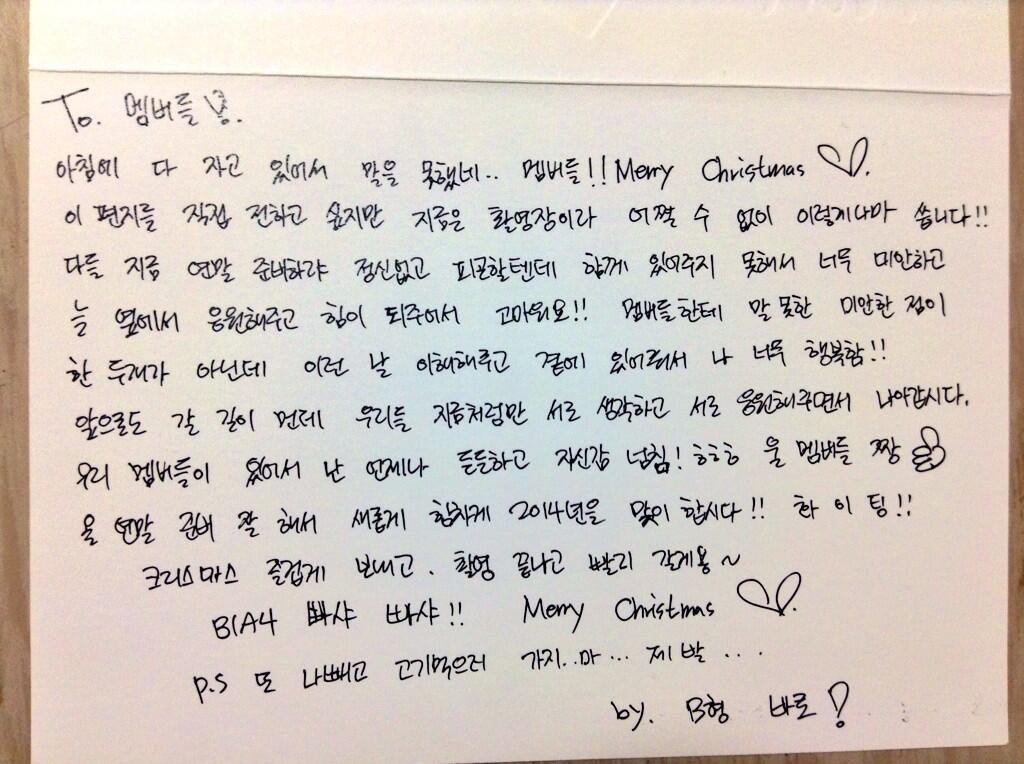 To. 멤버들.
아침에 다 자고 있어서 말을 못했네.. 멤버들!! Merry Christmas ♡.
이 편지를 직접 전하고 싶지만 지금은 촬영장이라 어쩔 수 없이 이렇게나마 씁니다!!
다들 지금 연말 준비하랴 정신없고 피곤할텐데 함께 있어주지 못해서 너무 미안하고
늘 옆에서 응원해주고 힘이 되주어서 고마워요!! 멤버들한테 말 못한 미안한 점이
한 두개가 아닌데 이런 날 이해해주고 곁에 있어줘서 나 너무 행복함!!
앞으로도 갈 길이 먼데 우리들 지금처럼만 서로 생각하고 서로 응원해주면서 나아갑시다.
우리 멤버들이 있어서 난 언제나 든든하고 자신감 넘침! ㅎㅎㅎ 울 멤버들 짱
올 연말 준비 잘 해서 새롭게 힘차게 2014년을 맞이 합시다!! 화 이 팅!!
크리스마스 즐겁게 보내고. 촬영 끝나고 빨리 갈게용~
B1A4 빠샤 빠샤!! Merry Christmas ♡.
p.s 또 나빼고 고기먹으러 가지..마... 제발 ....
by. B형 바로!